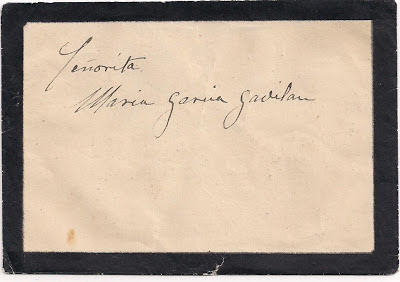 Señorita
Maria Garcia Gavilan